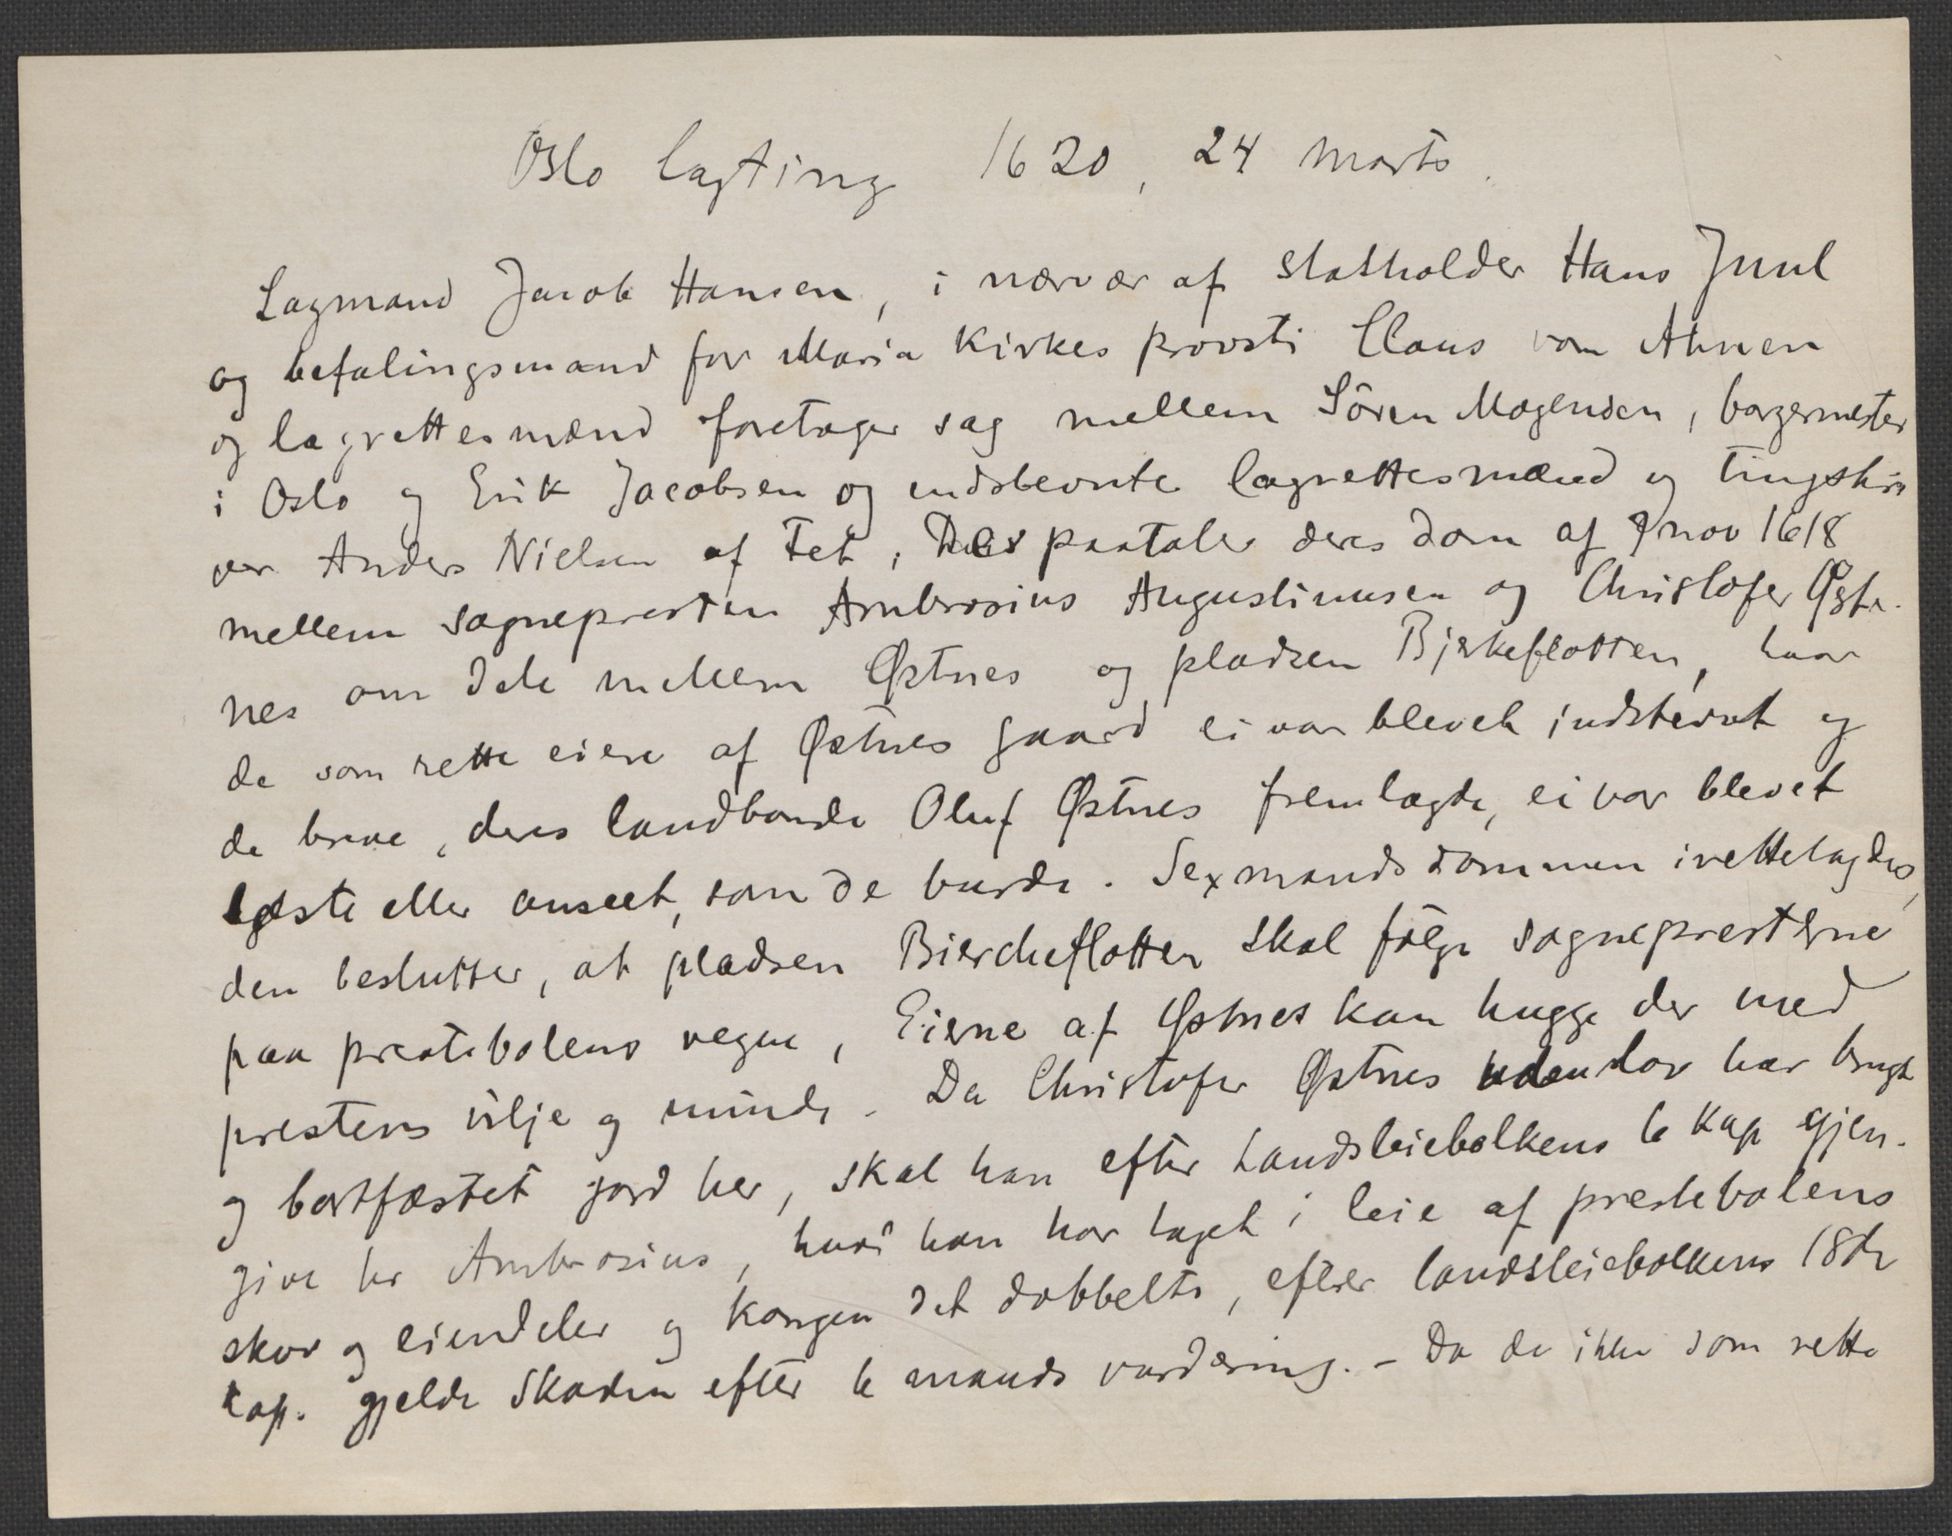 Oslo lagting 1620, 24 marts.
Lagmand Jacob Hansen, i nærvær af statholder Hans Juul
og befalingsmand for Maria Kirkes provsti Claus von Ahnen
og lagrettesmænd foretager sag mellem Sören Mogensen, borgermester
i Oslo og Erik Jacobsen og indstevnte lagrettesmænd og tingskri
ver Anders Nielsen af Fet, paataler deres dom af 9 nov 1618
mellem sognepresten Ambrosius Augustinusen og Christofer Øst-
nes om dele mellem Østnes og pladsen Bjerkeflotten, hvor
de som rette eiere af Østnes gaard ei var blevet indstevnt og
de breve, deres landbonde Oluf Østnes fremlagde, ei var blevet
læste eller anseet, som de burde. Sexmandsdommen irettelagdes,
den beslutter, at pladsen Biercheflotten skal følge sogneprestene
paa prestebolens vegne, Eierne af Østnes kan hugge der med
prestens vilje og minde. Da Christofer Østnes uden lov har brugt
og bortfæstet jord her, skal han efter Landsleiebolkens 6 Kap gjen-
give hr Ambrosius, hvad han har taget i leie af prestebolens
skov og eiendeler og Kongen det dobbelte, efter landsleiebolkens 18de
Cap. gjelde Skaden efter 6 mands vurdering. - Da de ikke som rette